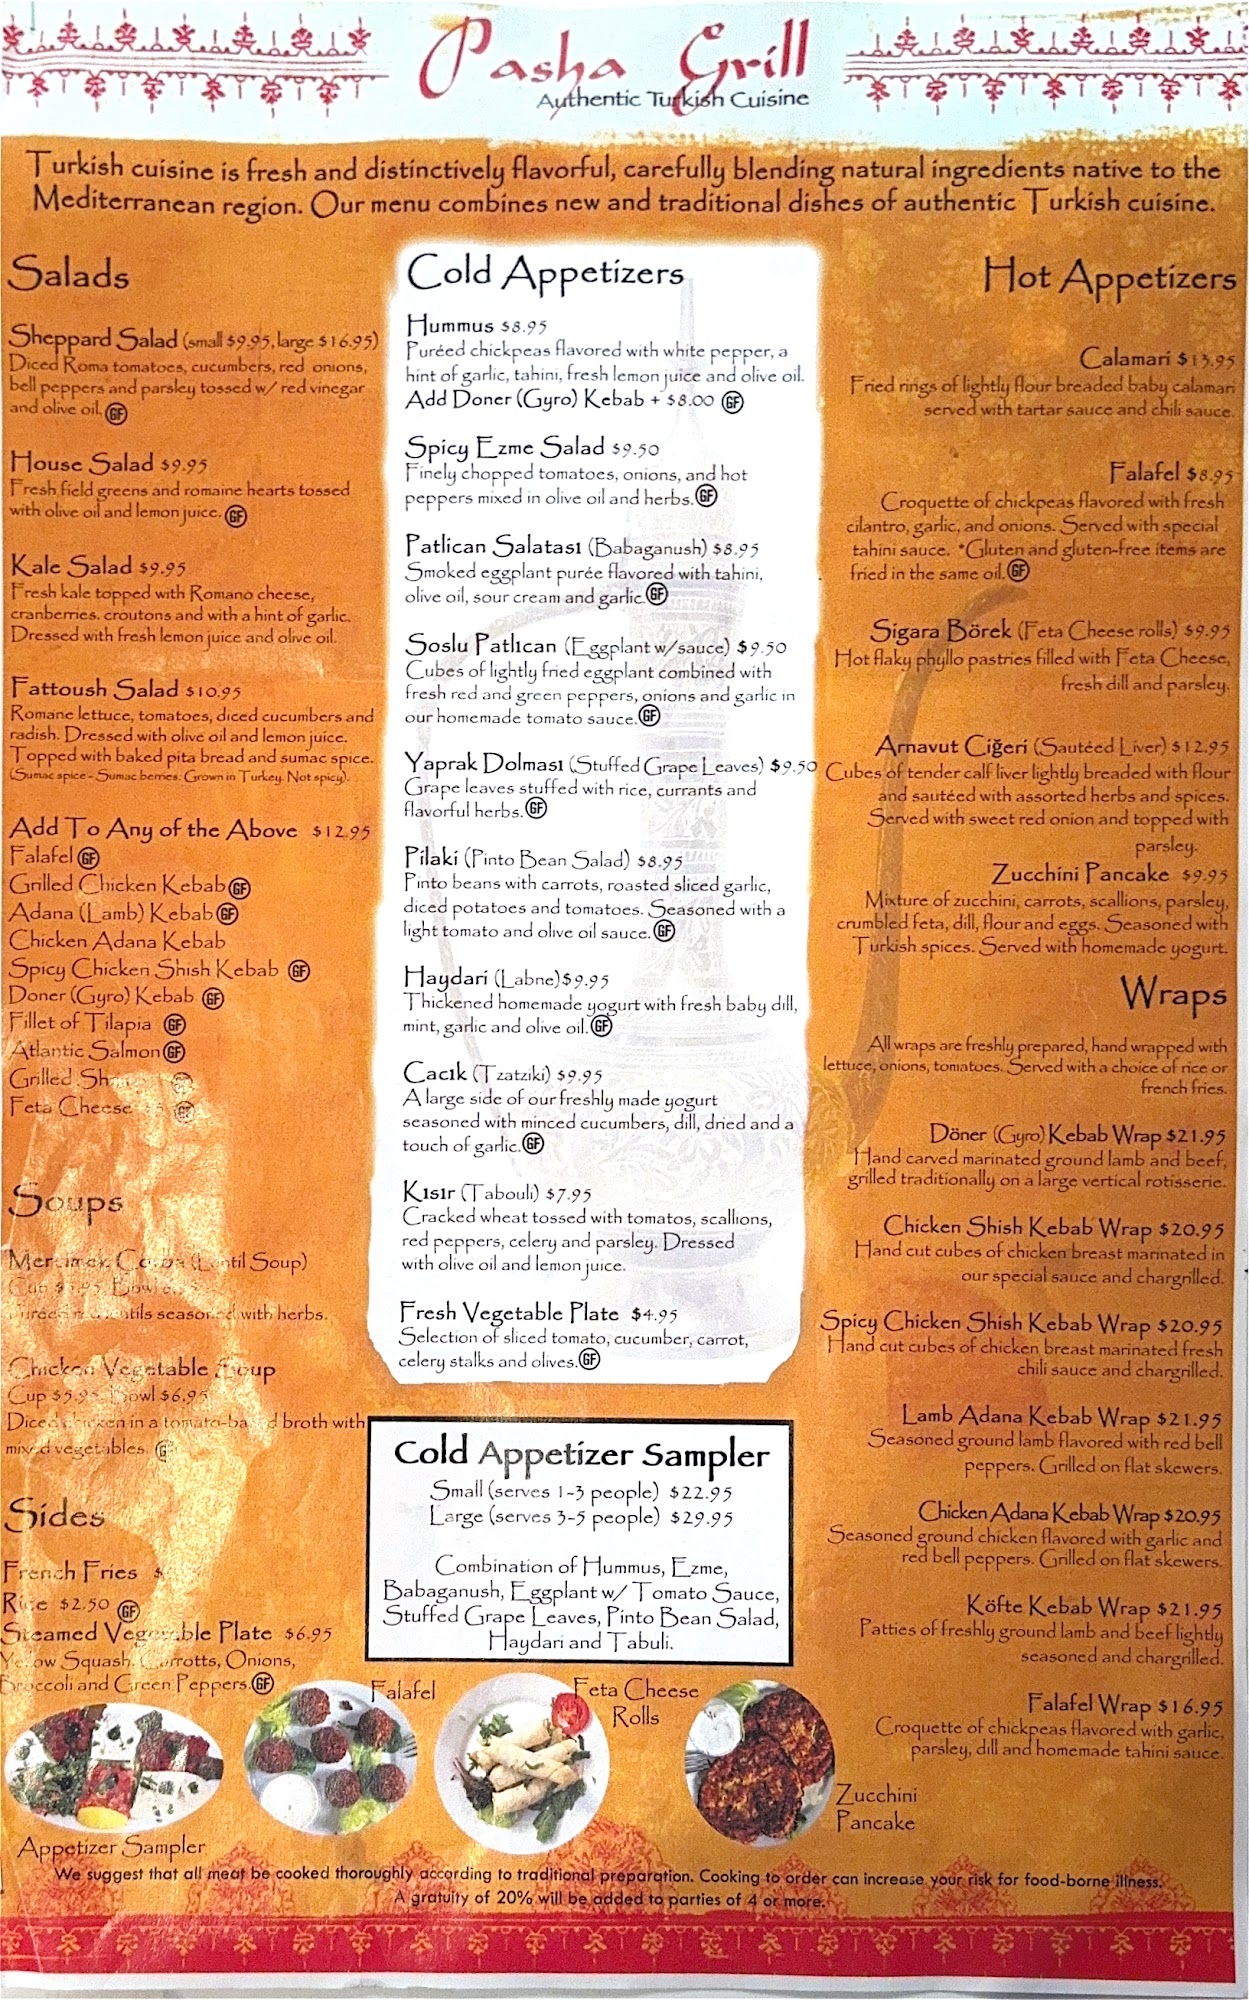 Pasha Grill
Authentic Turkish Cuisine
Turkish cuisine is fresh and distinctively flavorful, carefully blending natural ingredients native to the
Mediterranean region. Our menu combines new and traditional dishes of authentic Turkish cuisine.
Salads
Sheppard Salad (small $9.95, large $16.95)
Diced Roma tomatoes, cucumbers, red onions,
bell peppers and parsley tossed w/ red vinegar
and olive oil. GF
House Salad $9.95
Fresh field greens and romaine hearts tossed
with olive oil and lemon juice. GF
Kale Salad $9.95
Fresh kale topped with Romano cheese,
cranberries. croutons and with a hint of garlic.
Dressed with fresh lemon juice and olive oil.
Fattoush Salad $10.95
Romane lettuce, tomatoes, diced cucumbers and
radish. Dressed with olive oil and lemon juice.
Topped with baked pita bread and sumac spice.
(Sumac spice - Sumac berries. Grown in Turkey. Not spicy).
Add To Any of the Above $12.95
Falafel GF
Grilled Chicken Kebab GF
Adana (Lamb) Kebab GF
Chicken Adana Kebab
Spicy Chicken Shish Kebab GF
Doner (Gyro) Kebab GF
Fillet of Tilapia GF
Atlantic Salmon GF
Grilled GF
Feta Cheese GF
Soups
(Lentil Soup)
Cup Bowl
with herbs.
Chicken Vegetable Soup
Cup Bowl $6.95
Diced chicken in a tomato-based broth with
mixed vegetables.
Sides
French Fries
Rice $2.50 GF
Steamed Vegetable Plate $6.95
Yellow Squash, Carrotts, Onions,
Broccoli and Green Peppers. GF
Cold Appetizers
Hummus $8.95
Puréed chickpeas flavored with white pepper, a
hint of garlic, tahini, fresh lemon juice and olive oil.
Add Doner (Gyro) Kebab + $8.00 GF
Spicy Ezme Salad $9.50
Finely chopped tomatoes, onions, and hot
peppers mixed in olive oil and herbs. GF
Patlican Salatası (Babaganush) $8.95
Smoked eggplant purée flavored with tahini,
olive oil, sour cream and garlic. GF
Soslu Patlıcan (Eggplant w/sauce) $9.50
Cubes of lightly fried eggplant combined with
fresh red and green peppers, onions and garlic in
our homemade tomato sauce. GF
Yaprak Dolması (Stuffed Grape Leaves) $9.50
Grape leaves stuffed with rice, currants and
flavorful herbs. GF
Pilaki (Pinto Bean Salad) $8.95
Pinto beans with carrots, roasted sliced garlic,
diced potatoes and tomatoes. Seasoned with a
light tomato and olive oil sauce. GF
Haydari (Labne) $9.95
Thickened homemade yogurt with fresh baby dill,
mint, garlic and olive oil. GF
Cacık (Tzatziki) $9.95
A large side of our freshly made yogurt
seasoned with minced cucumbers, dill, dried and a
touch of garlic. GF
Kısır (Tabouli) $7.95
Cracked wheat tossed with tomatos, scallions,
red peppers, celery and parsley. Dressed
with olive oil and lemon juice.
Fresh Vegetable Plate $4.95
Selection of sliced tomato, cucumber, carrot,
celery stalks and olives. GF
Cold Appetizer Sampler
Small (serves 1-3 people) $22.95
Large (serves 3-5 people) $29.95
Combination of Hummus, Ezme,
Babaganush, Eggplant w/ Tomato Sauce,
Stuffed Grape Leaves, Pinto Bean Salad,
Haydari and Tabuli.
Hot Appetizers
Calamari $13.95
Fried rings of lightly flour breaded baby calamari
served with tartar sauce and chili sauce.
Falafel $8.95
Croquette of chickpeas flavored with fresh
cilantro, garlic, and onions. Served with special
tahini sauce. *Gluten and gluten-free items are
fried in the same oil. GF
Sigara Börek (Feta Cheese rolls) $9.95
Hot flaky phyllo pastries filled with Feta Cheese,
fresh dill and parsley.
Arnavut Ciğeri (Sautéed Liver) $12.95
Cubes of tender calf liver lightly breaded with flour
and sautéed with assorted herbs and spices.
Served with sweet red onion and topped with
parsley.
Zucchini Pancake $9.95
Mixture of zucchini, carrots, scallions, parsley,
crumbled feta, dill, flour and eggs. Seasoned with
Turkish spices. Served with homemade yogurt.
Wraps
All wraps are freshly prepared, hand wrapped with
lettuce, onions, tomatoes. Served with a choice of rice or
french fries.
Döner (Gyro) Kebab Wrap $21.95
Hand carved marinated ground lamb and beef,
grilled traditionally on a large vertical rotisserie.
Chicken Shish Kebab Wrap $20.95
Hand cut cubes of chicken breast marinated in
our special sauce and chargrilled.
Spicy Chicken Shish Kebab Wrap $20.95
Hand cut cubes of chicken breast marinated fresh
chili sauce and chargrilled.
Lamb Adana Kebab Wrap $21.95
Seasoned ground lamb flavored with red bell
peppers. Grilled on flat skewers.
Chicken Adana Kebab Wrap $20.95
Seasoned ground chicken flavored with garlic and
red bell peppers. Grilled on flat skewers.
Köfte Kebab Wrap $21.95
Patties of freshly ground lamb and beef lightly
seasoned and chargrilled.
Falafel Wrap $16.95
Croquette of chickpeas flavored with garlic,
parsley, dill and homemade tahini sauce.
Appetizer Sampler
Falafel
Feta Cheese
Rolls
Zucchini
Pancake
We suggest that all meat be cooked thoroughly according to traditional preparation. Cooking to order can increase your risk for food-borne illness.
A gratuity of 20% will be added to parties of 4 or more.